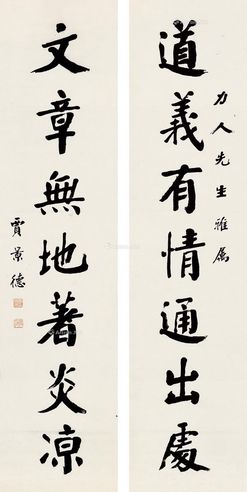 道義有情通出處
力人先生雅屬
文章無地著炎凉
賈景德